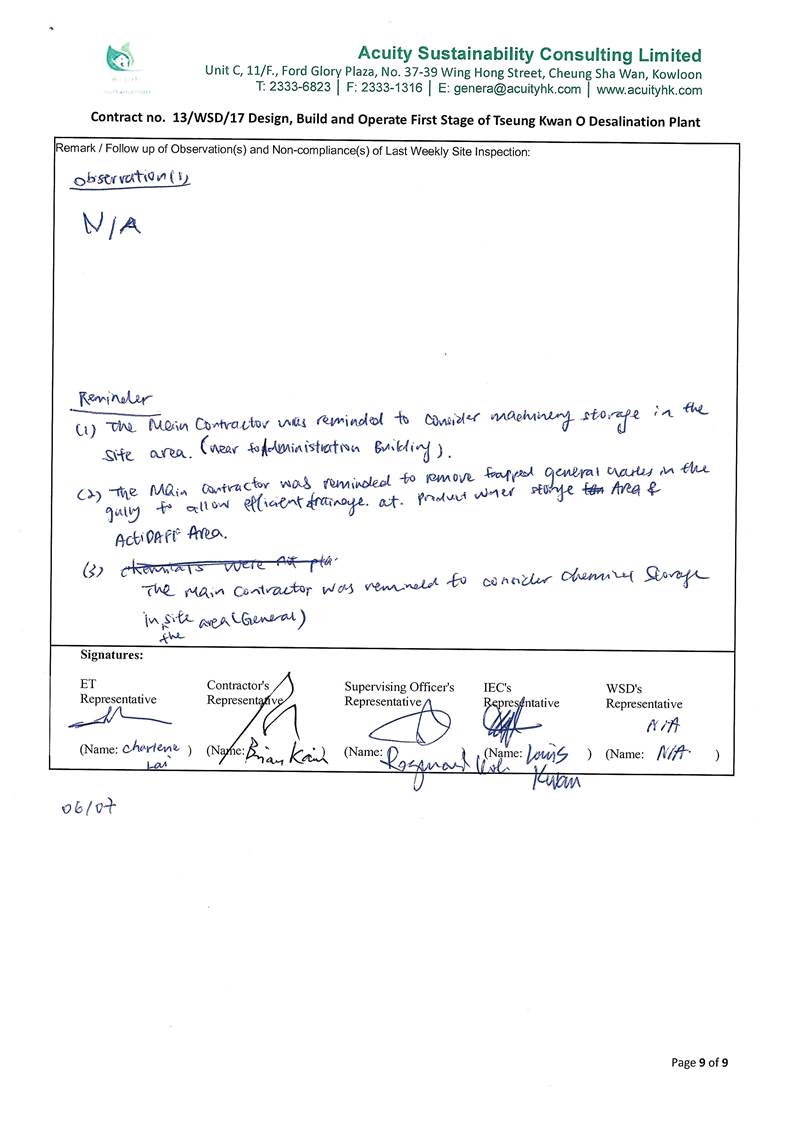 Acuity Sustainability Consulting Limited
Unit C, 11/F., Ford Glory Plaza, No. 37-39 Wing Hong Street, Cheung Sha Wan, Kowloon
T: 2333-6823 | F: 2333-1316 | E: genera@acuityhk.com | www.acuityhk.com
Contract no. 13/WSD/17 Design, Build and Operate First Stage of Tseung Kwan O Desalination Plant
Remark / Follow up of Observation(s) and Non-compliance(s) of Last Weekly Site Inspection:
Observation(1)
N/A
Reminder
(1) The Main Contractor was reminded to consider machinery storage in the
site area. (near to Administration Building).
(2) The Main Contractor was reminded to remove trapped general wastes in the
gully to allow efficient drainage. at. Product water storage Area &
ActiDAFF Area.
(3) chemicals were at pla
The Main Contractor was remineld to consider chemical storage
in site area (General)
the
Signatures:
ET Representative
Contractor's Representative
Supervising Officer's Representative
IEC's Representative
WSD's Representative
N/A
(Name: Charlene Lai )
(Name: Brian Kam
(Name:
(Name: Louis Kwan )
(Name: N/A )
06/07
Page 9 of 9